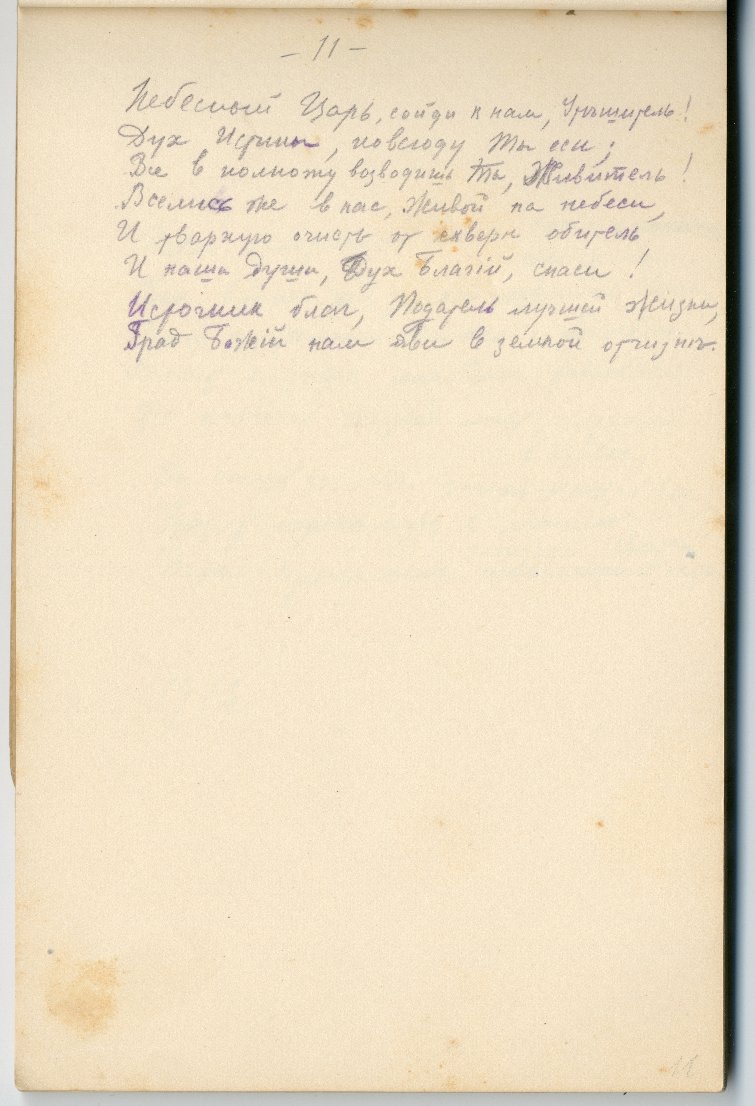 – 11 –
Небесный Царь, сойди к нам, Утѣшитель!
Дух Истины, повсюду Ты еси;
Все в полноту возводишь Ты, Живитель!
Вселись же в нас, живой на небеси,
И тварную очисть от скверн обитель
И наши души, Дух Благій, спаси!
Источник благ, Податель лучшей жизни,
Град Божій нам яви в земной отчизнѣ.
11